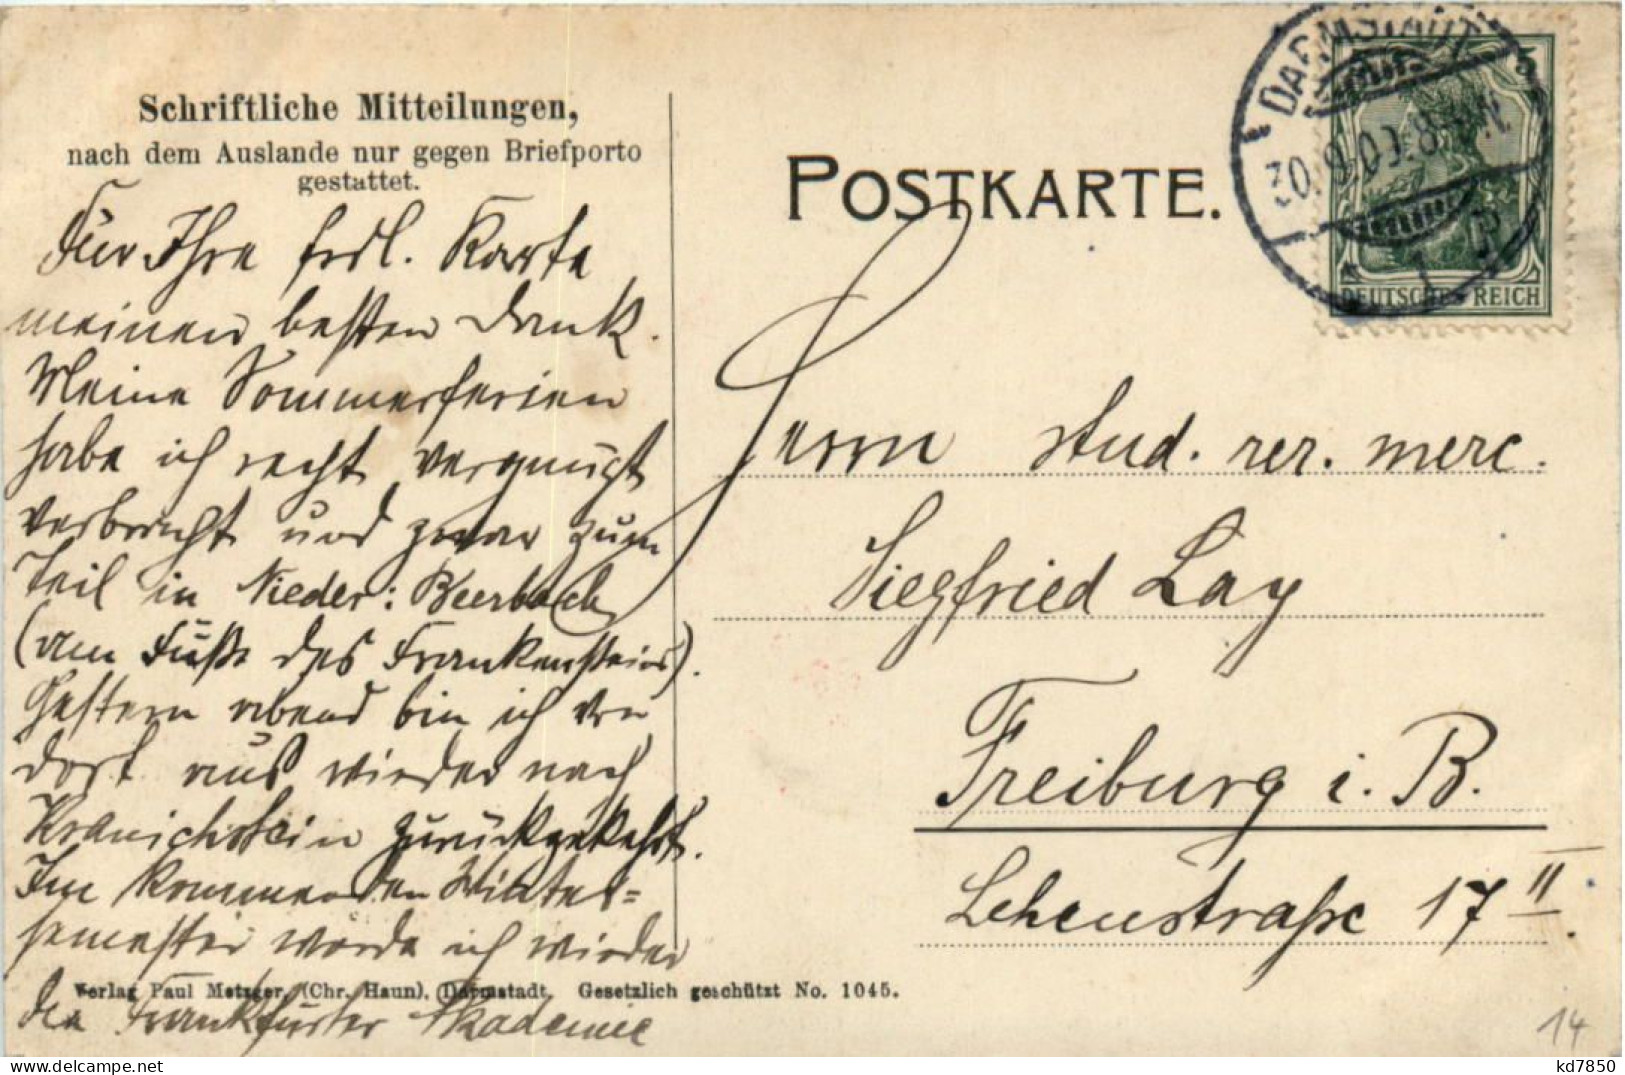 Schriftliche Mitteilungen,
nach dem Auslande nur gegen Briefporto
gestattet.
Für Ihre frdl. Karte
meinen besten Dank.
Meine Sommerferien
habe ich recht vergnügt
verbracht und zwar zum
Teil in Nieder: Beerbach
(am Fuße des Frankensteins).
Gestern abend bin ich von
dort aus wieder nach
Kranichstein zurückgekehrt.
Im kommenden Winter=
semester werde ich wieder
die Frankfurter Akademie
Verlag Paul Metzger, (Chr. Haun), Darmstadt. Gesetzlich geschützt No. 1045.
POSTKARTE.
DARMSTADT
30.9.09.8-9 N.
* 1
5
DEUTSCHES REICH
Herrn stud. rer. merc.
Siegfried Lay
Freiburg i. B.
Lehenstraße 17 II.
14
kd7850